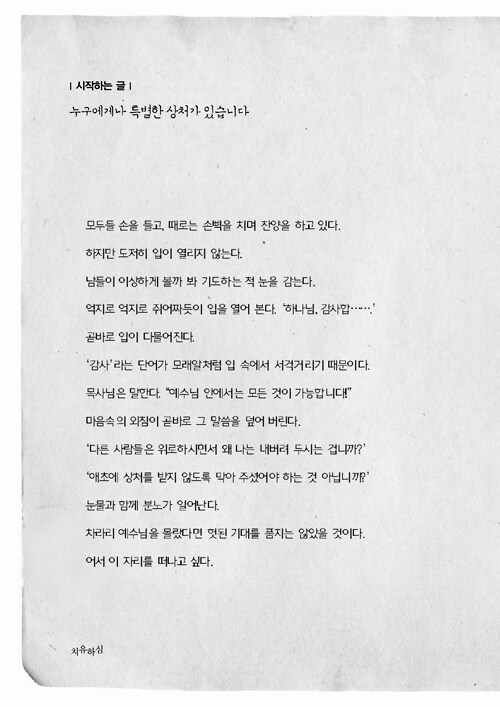 | 시작하는 글 |
누구에게나 특별한 상처가 있습니다
모두들 손을 들고, 때로는 손벽을 치며 찬양을 하고 있다.
하지만 도저히 입이 열리지 않는다.
남들이 이상하게 볼까 봐 기도하는 척 눈을 감는다.
억지로 억지로 쥐어짜듯이 입을 열어 본다. ‘하나님, 감사합…….’
곧바로 입이 다물어진다.
‘감사’라는 단어가 모래알처럼 입 속에서 서걱거리기 때문이다.
목사님은 말한다. “예수님 안에서는 모든 것이 가능합니다!”
마음속의 외침이 곧바로 그 말씀을 덮어 버린다.
‘다른 사람들은 위로하시면서 왜 나는 내버려 두시는 겁니까?’
‘애초에 상처를 받지 않도록 막아 주셨어야 하는 것 아닙니까?’
눈물과 함께 분노가 일어난다.
차라리 예수님을 몰랐다면 헛된 기대를 품지는 않았을 것이다.
어서 이 자리를 떠나고 싶다.
치유하심